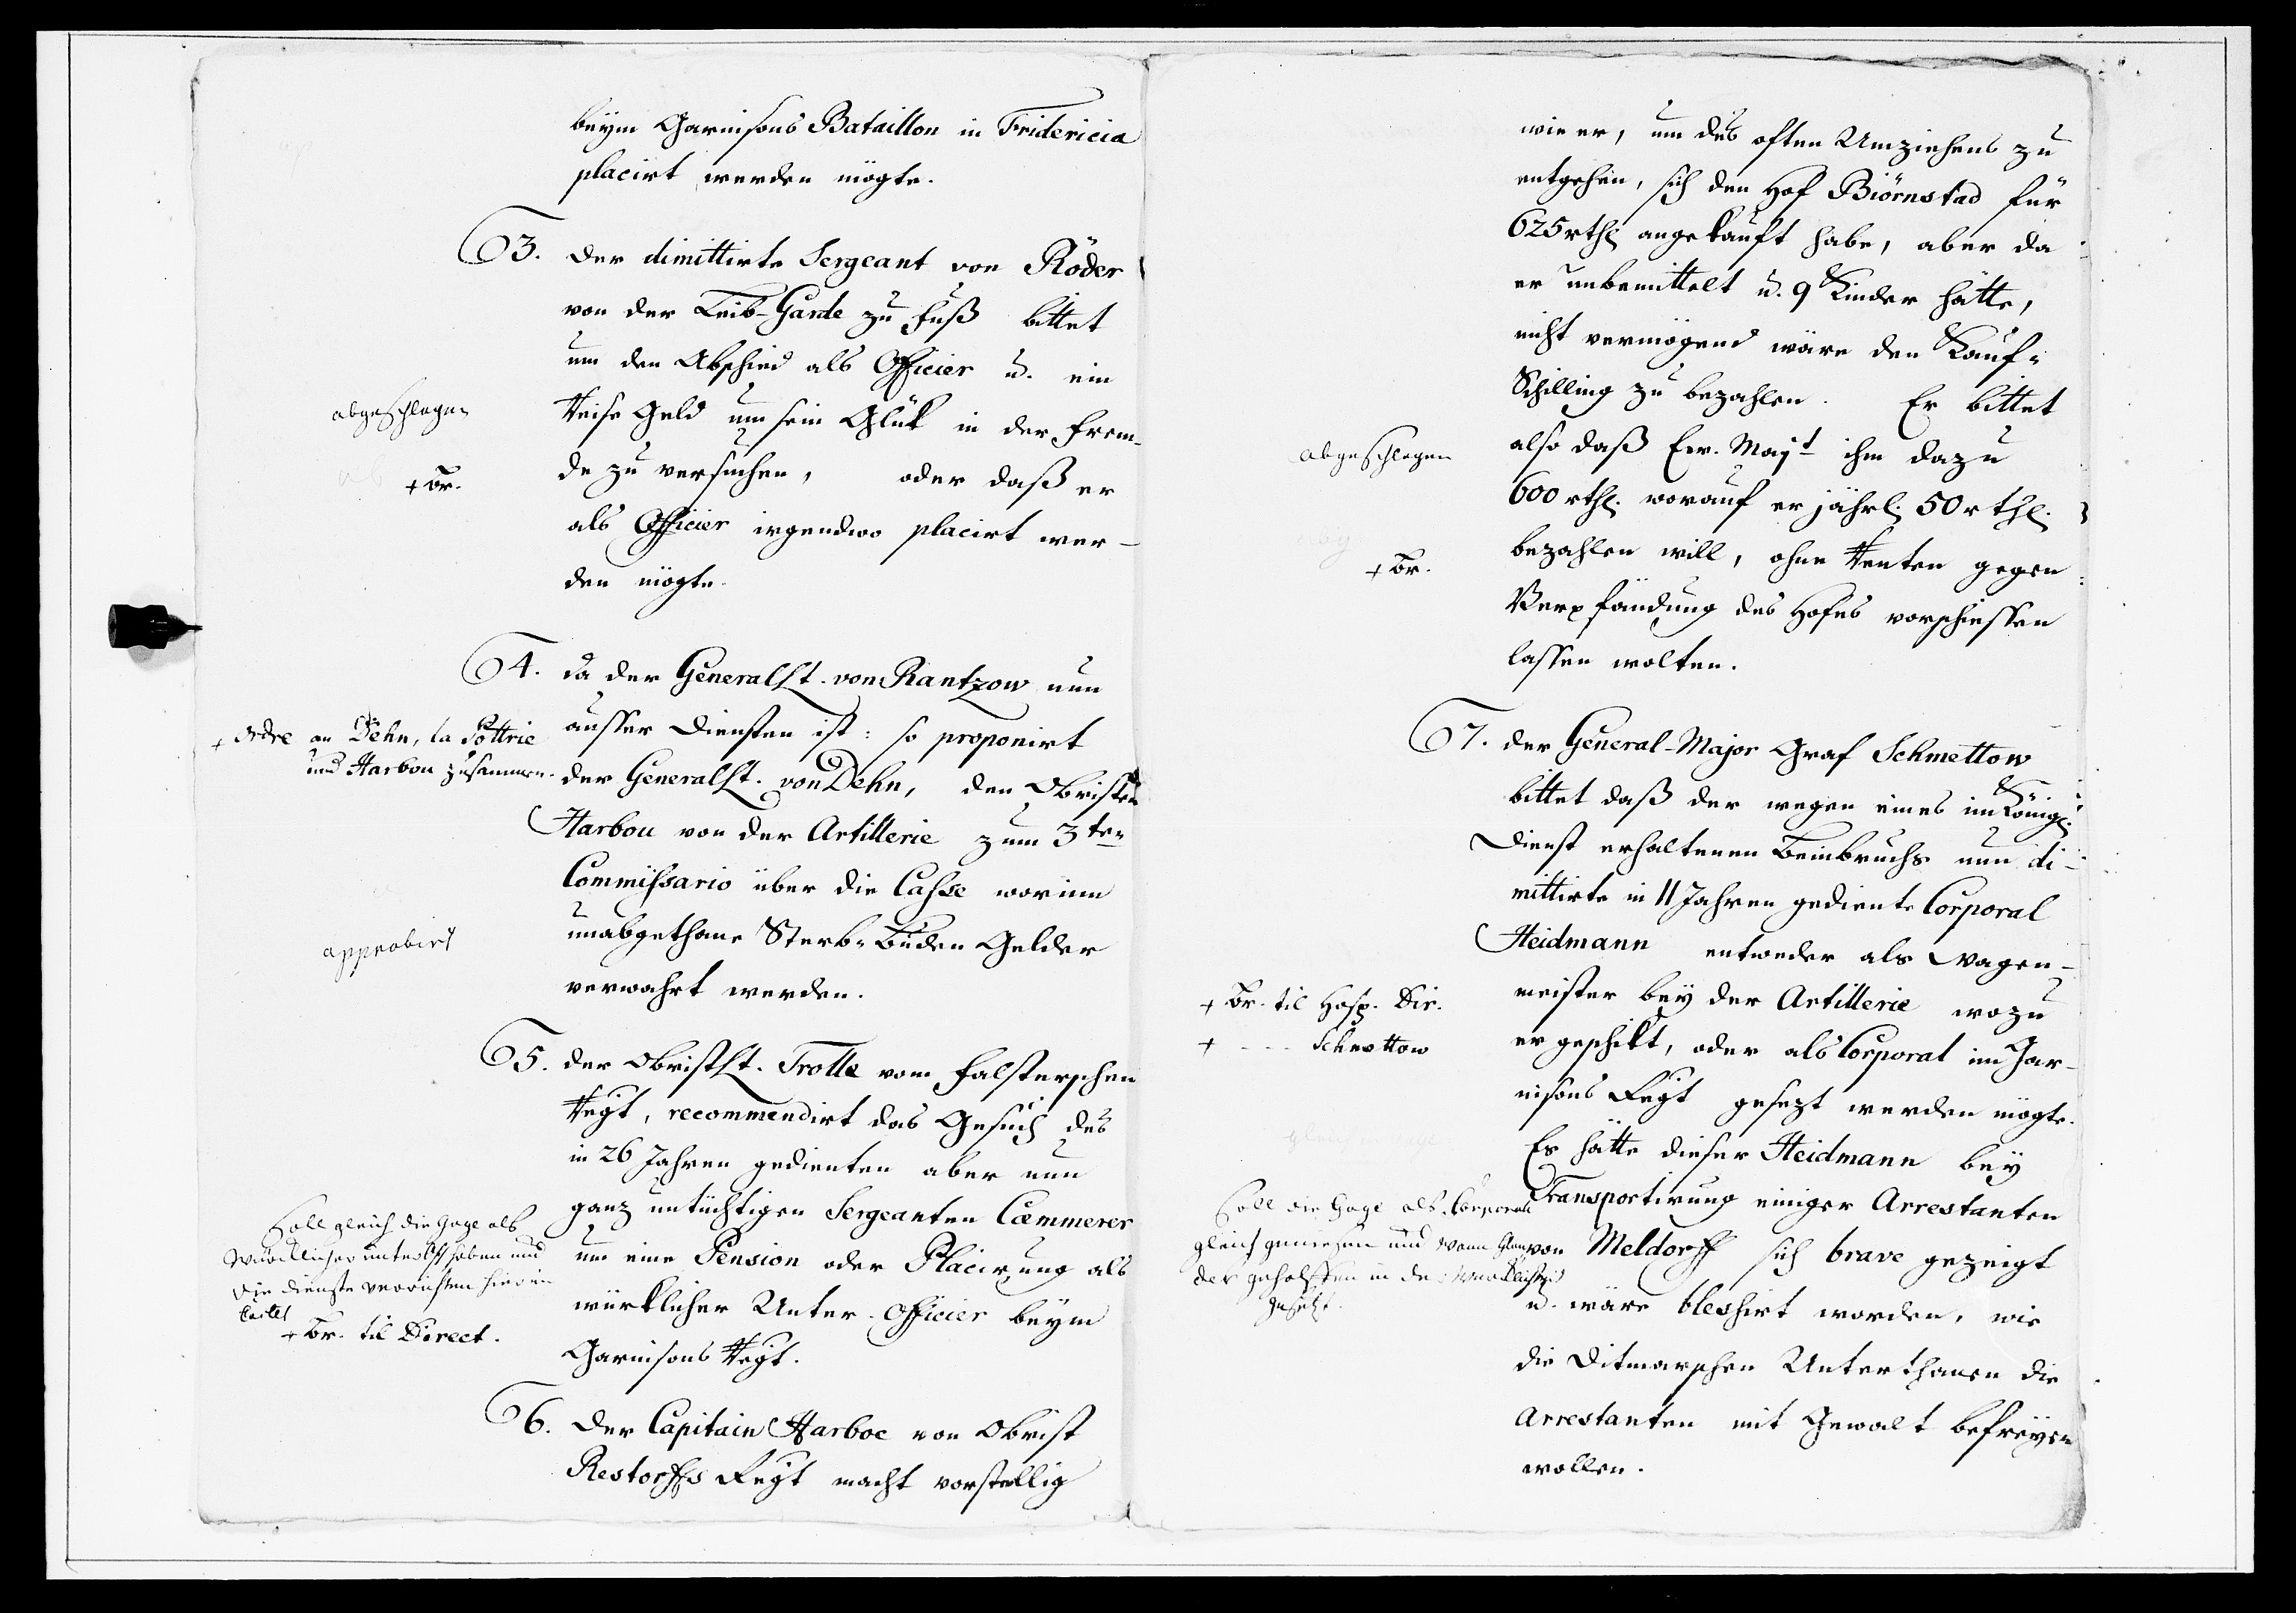 beÿm Garnisons Bataillon in Fridericia
placirt werden mögte.
3. Der dimittirte Sergeant von Röder
von der Leib-Garde zu Fuß bittet
um den Abschied als Officier u. ein
Reise Geld um sein Glük in der Frem-
de zu versuchen, oder daß er
als Officier irgendwo placirt wer-
den mögte.
abgeschlagen
+ Br.
4. Da der Generallt. von Rantzow nun
ausser Diensten ist: so proponirt
der Generallt. von Dehn, den Obristen
Harbou von der Artillerie zum 3ten
Commissario über die Casse worinn
unabgethane Sterb-Buden Gelder
verwahrt werden.
+ Ordre an Dehn, la Pottrie
und Harbou zusammen.
approbirt
5. Der Obristlt. Trolle vom Falsterschen
Regt, recommendirt das Gesuch des
in 26 Jahren gedienten aber nun
ganz untüchtigen Sergeanten Cæmmerer
um eine Pension oder Placirung als
würklicher Unter-Officier beÿm
Garnisons Regt.
Soll gleich die Gage als
würcklicher unter Off haben und
die Dienste verrichten hier im
Castel
+ Br. til Direct.
6. Der Capitain Harboe von Obrist
Restorffs Regt macht vorstellig
wie er, um des often Umziehens zu
entgehen, sich den Hof Biörnstad für
625 rthl angekauft habe, aber da
er unbemittelt u. 9 Kinder hätte,
nicht vermögend wäre den Kauf-
Schilling zu bezahlen. Er bittet
also daß Ew. Majt ihm dazu
600 rthl. worauf er jährl. 50 rthl.
bezahlen will, ohne Renten gegen
Verpfändung des Hofes vorschiessen
lassen wolten.
abgeschlagen
+ Br.
7. Der General-Major Graf Schmettow
bittet daß der wegen eines im Königl.
Dienst erhaltenen Beinbruchs nun di-
mittirte in 11 Jahren gediente Corporal
Heidmann entweder als Wagen-
meister beÿ der Artillerie wozu
er geschikt, oder als Corporal im Gar-
nisons Regt gesezt werden mögte.
Es hätte dieser Heidmann beÿ
Transportirung einiger Arrestanten
von Meldorff sich brave gezeigt
u. wäre blessirt worden, wie
die Ditmarschen Unterthanen die
Arrestanten mit Gewalt befreÿen
wollen.
+ Br. til Hosp. Dir.
+ - - - Schmettow
Soll die Gage als Corporal
gleich geniessen und wann
der geholffen in der
gesetzt.